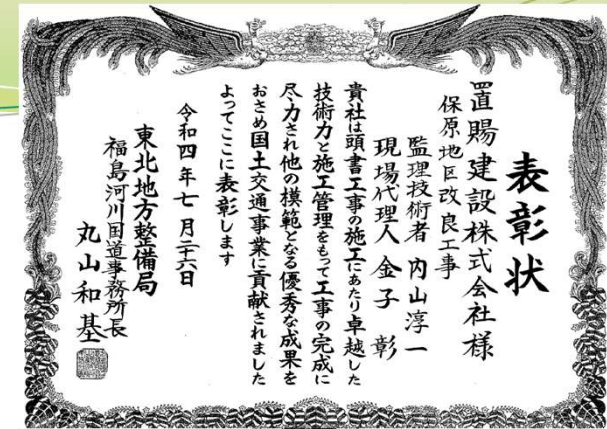 表彰状
置賜建設株式会社様
保原地区改良工事
監理技術者 内山淳一
現場代理人 金子彰
貴社は頭書工事の施工にあたり卓越した
技術力と施工管理をもって工事の完成に
尽力され他の模範となる優秀な成果を
おさめ国土交通事業に貢献されました
よってここに表彰します
令和四年七月二十六日
東北地方整備局
福島河川国道事務所長
丸山和基